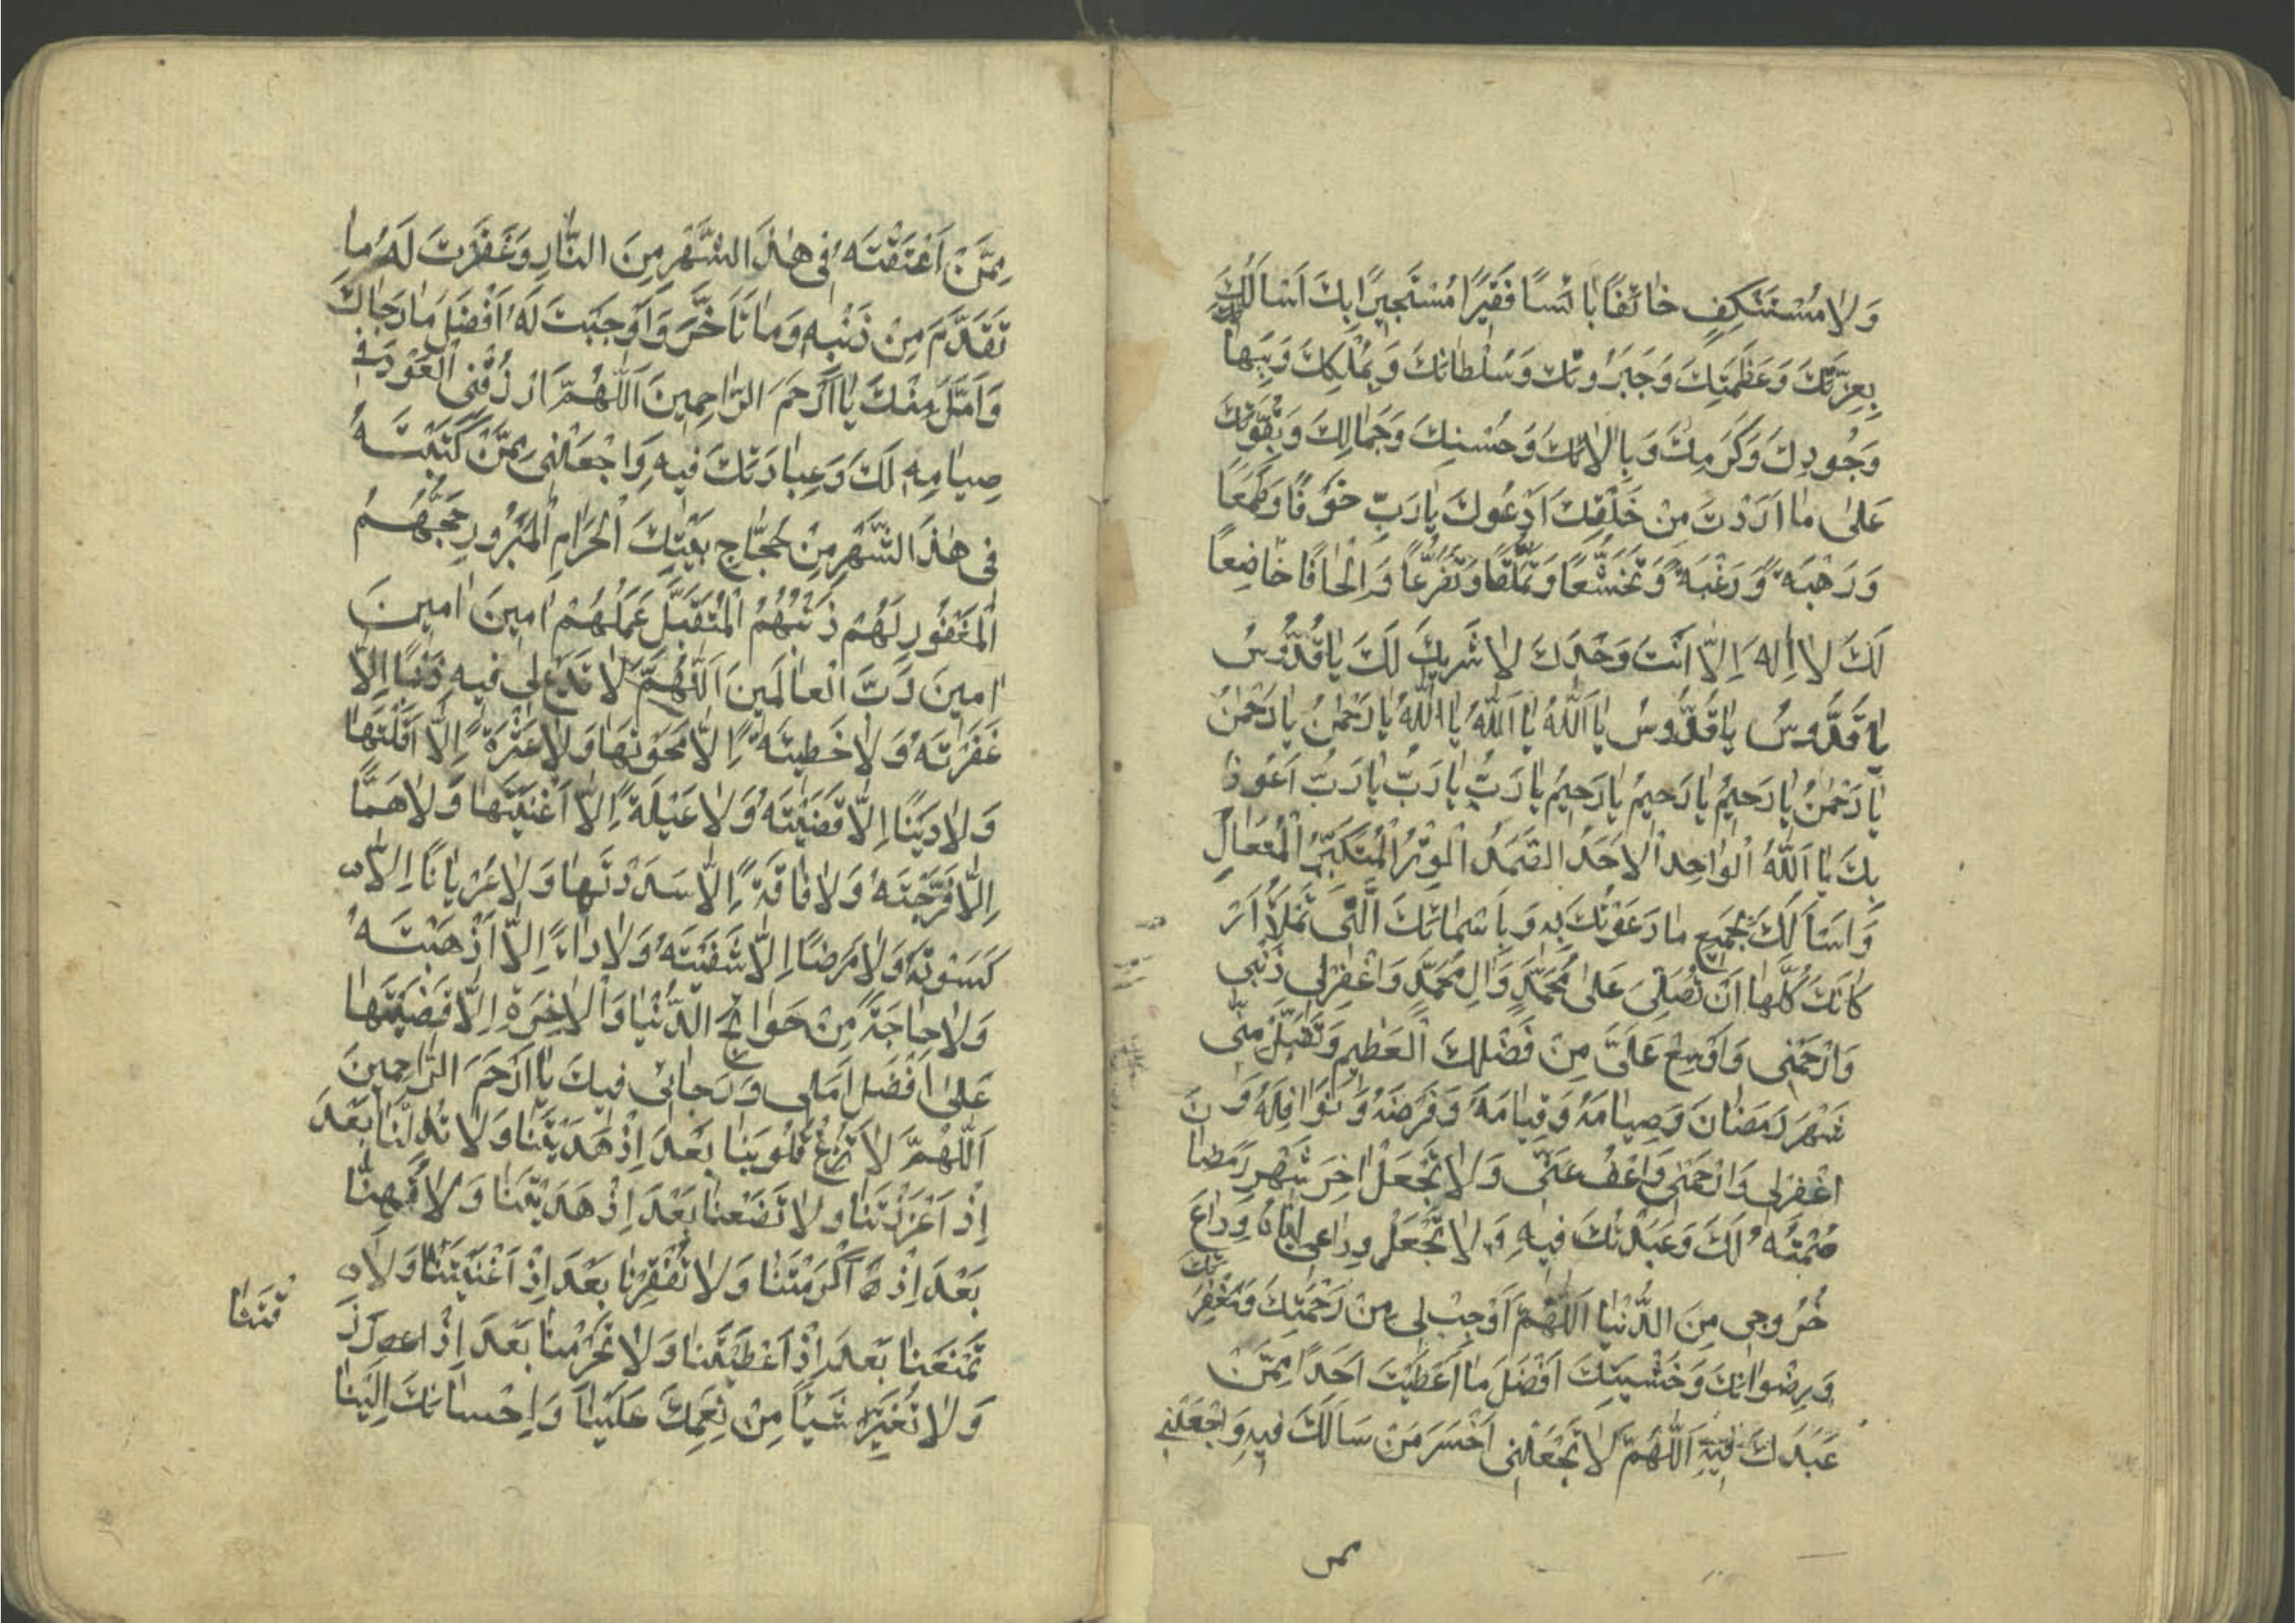 وَلَا مُسْتَنْكِفٍ خَائِفًا بَائِسًا فَقِيرًا مُسْتَجِيرًا بِكَ اَسْاَلُكَ
بِعِزَّتِكَ وَعَظَمَتِكَ وَجَبَرُوتِكَ وَسُلْطَانِكَ وَبِمُلْكِكَ وَبِبَهَا
وَجُودِكَ وَكَرَمِكَ وَبِاٰلَائِكَ وَحُسْنِكَ وَجَمَالِكَ وَبِقُوَّتِكَ
عَلىٰ مَا اَرَدْتَ مِنْ خَلْقِكَ اَدْعُوكَ يَا رَبِّ خَوْفًا وَطَمَعًا
وَرَهْبَةً وَرَغْبَةً وَتَخَشُّعًا وَتَمَلُّقًا وَتَضَرُّعًا وَاِلْحَافًا خَاضِعًا
لَكَ لَا اِلٰهَ اِلَّا اَنْتَ وَحْدَكَ لَا شَرِيكَ لَكَ يَا قُدُّوسُ
يَا قُدُّوسُ يَا قُدُّوسُ يَا اَللّٰهُ يَا اَللّٰهُ يَا اَللّٰهُ يَا رَحْمٰنُ يَا رَحْمٰنُ
يَا رَحْمٰنُ يَا رَحِيمُ يَا رَحِيمُ يَا رَحِيمُ يَا رَبُّ يَا رَبُّ يَا رَبُّ اَعُوذُ
بِكَ يَا اَللّٰهُ الْوَاحِدُ الْاَحَدُ الصَّمَدُ الْوِتْرُ الْمُتَكَبِّرُ الْمُتَعَالِ
وَاَسْاَلُكَ بِجَمِيعِ مَا دَعَوْتُكَ بِهِ وَبِاَسْمَائِكَ الَّتِي تَمْلَاُ اَرْ
كَانَكَ كُلَّهَا اَنْ تُصَلِّيَ عَلىٰ مُحَمَّدٍ وَاٰلِ مُحَمَّدٍ وَاغْفِرْ لِي ذَنْبِي
وَارْحَمْنِي وَاَوْسِعْ عَلَيَّ مِنْ فَضْلِكَ الْعَظِيمِ وَتَقَبَّلْ مِنِّي
شَهْرَ رَمَضَانَ وَصِيَامَهُ وَقِيَامَهُ وَفَرْضَهُ وَنَوَافِلَهُ وَ
اغْفِرْ لِي وَارْحَمْنِي وَاعْفُ عَنِّي وَلَا تَجْعَلْ اٰخِرَ شَهْرِ رَمَضَانَ
صُمْتُهُ لَكَ وَعَبَدْتُكَ فِيهِ وَلَا تَجْعَلْ وِدَاعِي اِيَّاهُ وِدَاعَ
خُرُوجِي مِنَ الدُّنْيَا اَللّٰهُمَّ اَوْجِبْ لِي مِنْ رَحْمَتِكَ وَمَغْفِرَتِكَ
وَرِضْوَانِكَ وَخَشْيَتِكَ اَفْضَلَ مَا اَعْطَيْتَ اَحَدًا مِمَّنْ
عَبَدَكَ فِيهِ اَللّٰهُمَّ لَا تَجْعَلْنِي اَخْسَرَ مَنْ سَاَلَكَ فِيهِ وَاجْعَلْنِي
مِمَّنْ اَعْتَقْتَهُ فِي هٰذَا الشَّهْرِ مِنَ النَّارِ وَغَفَرْتَ لَهُ مَا
تَقَدَّمَ مِنْ ذَنْبِهِ وَمَا تَاَخَّرَ وَاَوْجَبْتَ لَهُ اَفْضَلَ مَا رَجَاكَ
وَاَمَّلَ مِنْكَ يَا اَرْحَمَ الرَّاحِمِينَ اَللّٰهُمَّ ارْزُقْنِي الْعَوْدَ فِي
صِيَامِهِ لَكَ وَعِبَادَتِكَ فِيهِ وَاجْعَلْنِي مِمَّنْ كَتَبْتَهُ
فِي هٰذَا الشَّهْرِ مِنْ حُجَّاجِ بَيْتِكَ الْحَرَامِ الْمَبْرُورِ حَجُّهُمُ
الْمَغْفُورِ لَهُمْ ذَنْبُهُمُ الْمُتَقَبَّلِ عَمَلُهُمْ اٰمِينَ اٰمِينَ
اٰمِينَ رَبَّ الْعَالَمِينَ اَللّٰهُمَّ لَا تَدَعْ لِي فِيهِ ذَنْبًا اِلَّا
غَفَرْتَهُ وَلَا خَطِيئَةً اِلَّا مَحَوْتَهَا وَلَا عَثْرَةً اِلَّا اَقَلْتَهَا
وَلَا دَيْنًا اِلَّا قَضَيْتَهُ وَلَا عَيْلَةً اِلَّا اَغْنَيْتَهَا وَلَا هَمًّا
اِلَّا فَرَّجْتَهُ وَلَا فَاقَةً اِلَّا سَدَدْتَهَا وَلَا عُرْيَانًا اِلَّا
كَسَوْتَهُ وَلَا مَرَضًا اِلَّا شَفَيْتَهُ وَلَا دَاءً اِلَّا اَذْهَبْتَهُ
وَلَا حَاجَةً مِنْ حَوَائِجِ الدُّنْيَا وَالْاٰخِرَةِ اِلَّا قَضَيْتَهَا
عَلىٰ اَفْضَلِ اَمَلِي وَرَجَائِي فِيكَ يَا اَرْحَمَ الرَّاحِمِينَ
اَللّٰهُمَّ لَا تُزِغْ قُلُوبَنَا بَعْدَ اِذْ هَدَيْتَنَا وَلَا تُذِلَّنَا بَعْدَ
اِذْ اَعْزَزْتَنَا وَلَا تَضَعْنَا بَعْدَ اِذْ هَدَيْتَنَا وَلَا تُهِنَّا
بَعْدَ اِذْ اَكْرَمْتَنَا وَلَا تُفْقِرْنَا بَعْدَ اِذْ اَغْنَيْتَنَا وَلَا
تَمْنَعْنَا بَعْدَ اِذْ اَعْطَيْتَنَا وَلَا تَحْرِمْنَا بَعْدَ اِذْ
وَلَا تُغَيِّرْ شَيْئًا مِنْ نِعَمِكَ عَلَيْنَا وَاِحْسَانِكَ اِلَيْنَا